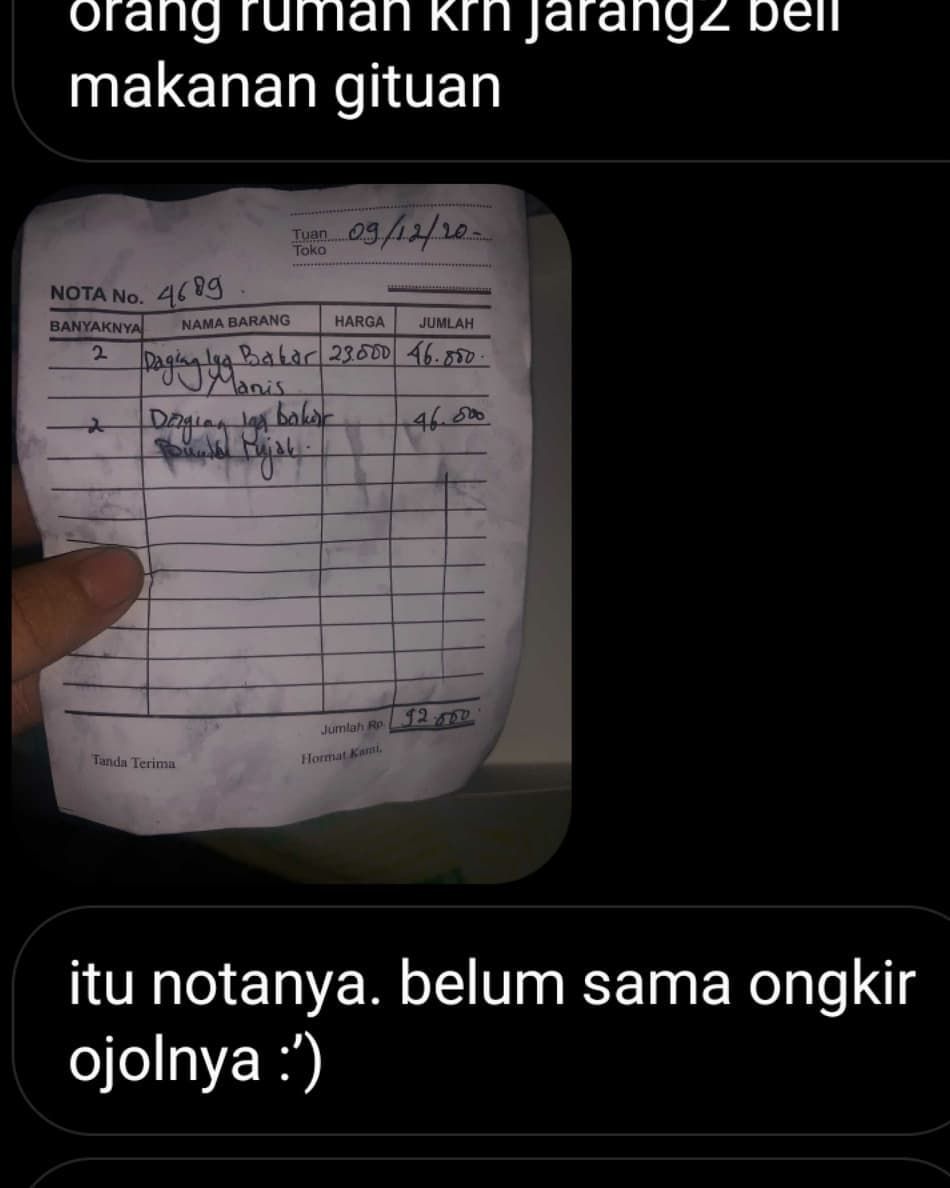 orang rumah krn jarang2 beli
makanan gituan
Tuan
Toko
09/12/20-
NOTA No. 4689.
BANYAKNYA NAMA BARANG HARGA JUMLAH
2 Daging Iga Bakar 23.000 46.000.
Manis
2 Daging Iga bakar 46.000
Bumbu Rujak.
Jumlah Rp. 92.000
Tanda Terima Hormat Kami,
itu notanya. belum sama ongkir
ojolnya :')